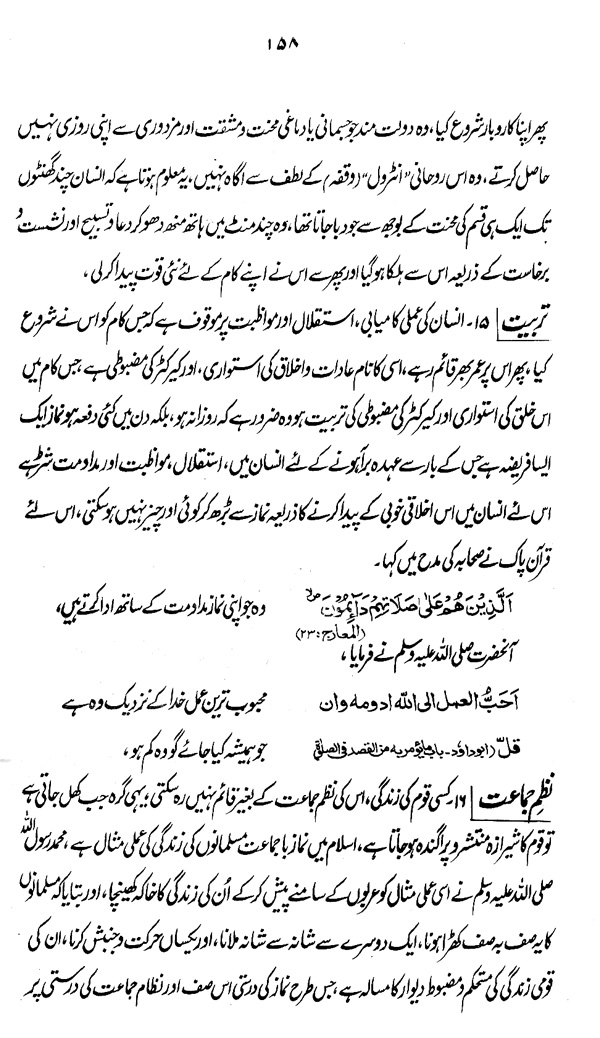 ۱۵۸
پھر اپنا کاروبار شروع کیا، وہ دولت مند جو جسمانی یا دماغی محنت و مشقت اور مزدوری سے اپنی روزی نہیں
حاصل کرتے، وہ اس روحانی "انٹرول" (وقفہ) کے لطف سے آگاہ نہیں، یہ معلوم ہوتا ہے کہ انسان چند گھنٹوں
تک ایک ہی قسم کی محنت کے بوجھ سے جو دبا جاتا تھا، وہ چند منٹ میں ہاتھ منھ دھو کر دعا و تسبیح اور نشست و
برخاست کے ذریعہ اس سے ہلکا ہو گیا اور پھر سے اس نے اپنے کام کے لئے نئی قوت پیدا کر لی،
تربیت ۱۵۔ انسان کی عملی کامیابی، استقلال اور مواظبت پر موقوف ہے کہ جس کام کو اس نے شروع
کیا، پھر اس پر عمر بھر قائم رہے، اسی کا نام عادات و اخلاق کی استواری، اور کیرکٹر کی مضبوطی ہے، جس کام میں
اس خلق کی استواری اور کیرکٹر کی مضبوطی کی تربیت ہو وہ ضرور ہے کہ روزانہ ہو، بلکہ دن میں کئی دفعہ ہو نماز ایک
ایسا فریضہ ہے جس کے بار سے عہدہ برآ ہونے کے لئے انسان میں، استقلال، مواظبت اور مداومت شرط ہے
اس لئے انسان میں اس اخلاقی خوبی کے پیدا کرنے کا ذریعہ نماز سے بڑھ کر کوئی اور چیز نہیں ہو سکتی، اس لئے
قرآن پاک نے صحابہ کی مدح میں کہا۔
اَلَّذِيْنَ هُمْ عَلٰى صَلَاتِهِمْ دَآئِمُوْنَ وہ جو اپنی نماز مداومت کے ساتھ ادا کرتے ہیں،
(المعارج: ۲۳)
آنحضرت صلی اللہ علیہ وسلم نے فرمایا،
اَحَبُّ العمل الى الله ادومه وان محبوب ترین عمل خدا کے نزدیک وہ ہے
قَلّ (ابوداؤد۔ باب مایؤمر بہ من القصد فی الصلٰوۃ) جو ہمیشہ کیا جائے گو وہ کم ہو،
نظم جماعت ۱۶۔ کسی قوم کی زندگی، اس کی نظم جماعت کے بغیر قائم نہیں رہ سکتی، یہی گرہ جب کھل جاتی ہے
تو قوم کا شیرازہ منتشر و پراگندہ ہو جاتا ہے، اسلام میں نماز باجماعت مسلمانوں کی زندگی کی عملی مثال ہے، محمد رسول اللہ
صلی اللہ علیہ وسلم نے اسی عملی مثال کو عربوں کے سامنے پیش کر کے اُن کی زندگی کا خاکہ کھینچا، اور بتایا کہ مسلمانوں
کا یہ صف بہ صف کھڑا ہونا، ایک دوسرے سے شانہ سے شانہ ملانا، اور یکساں حرکت و جنبش کرنا، ان کی
قومی زندگی کی مستحکم و مضبوط دیوار کا مسالہ ہے، جس طرح نماز کی درستی اس صف اور نظام جماعت کی درستی پر